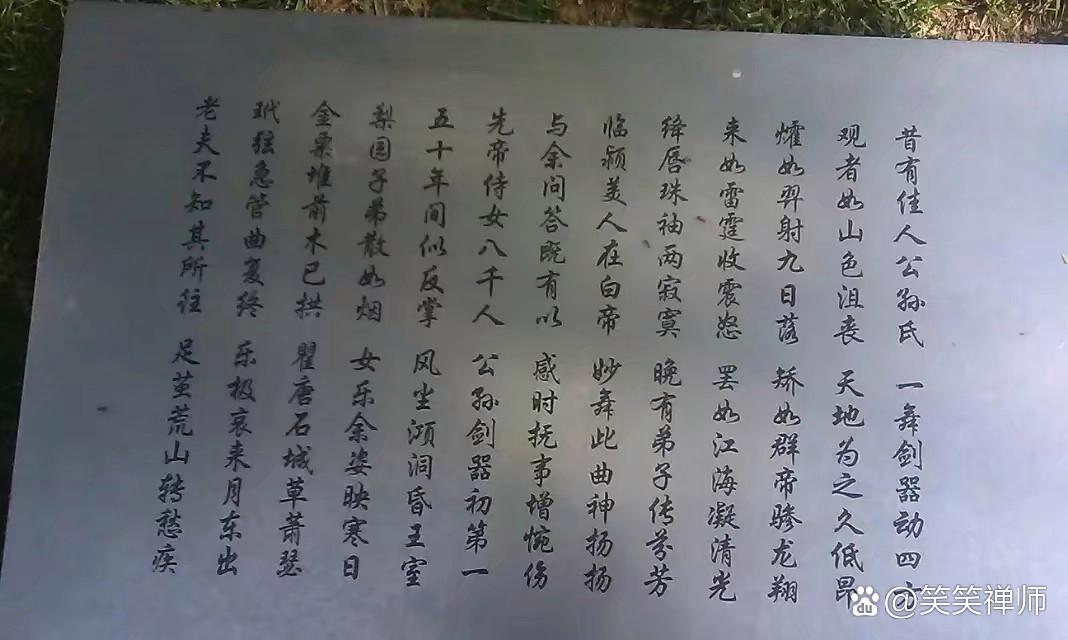 昔有佳人公孙氏 一舞剑器动四方
观者如山色沮丧 天地为之久低昂
㸌如羿射九日落 矫如群帝骖龙翔
来如雷霆收震怒 罢如江海凝清光
绛唇珠袖两寂寞 晚有弟子传芬芳
临颍美人在白帝 妙舞此曲神扬扬
与余问答既有以 感时抚事增惋伤
先帝侍女八千人 公孙剑器初第一
五十年间似反掌 风尘澒洞昏王室
梨园子弟散如烟 女乐余姿映寒日
金粟堆前木已拱 瞿唐石城草萧瑟
玳弦急管曲复终 乐极哀来月东出
老夫不知其所往 足茧荒山转愁疾
笑笑禅师